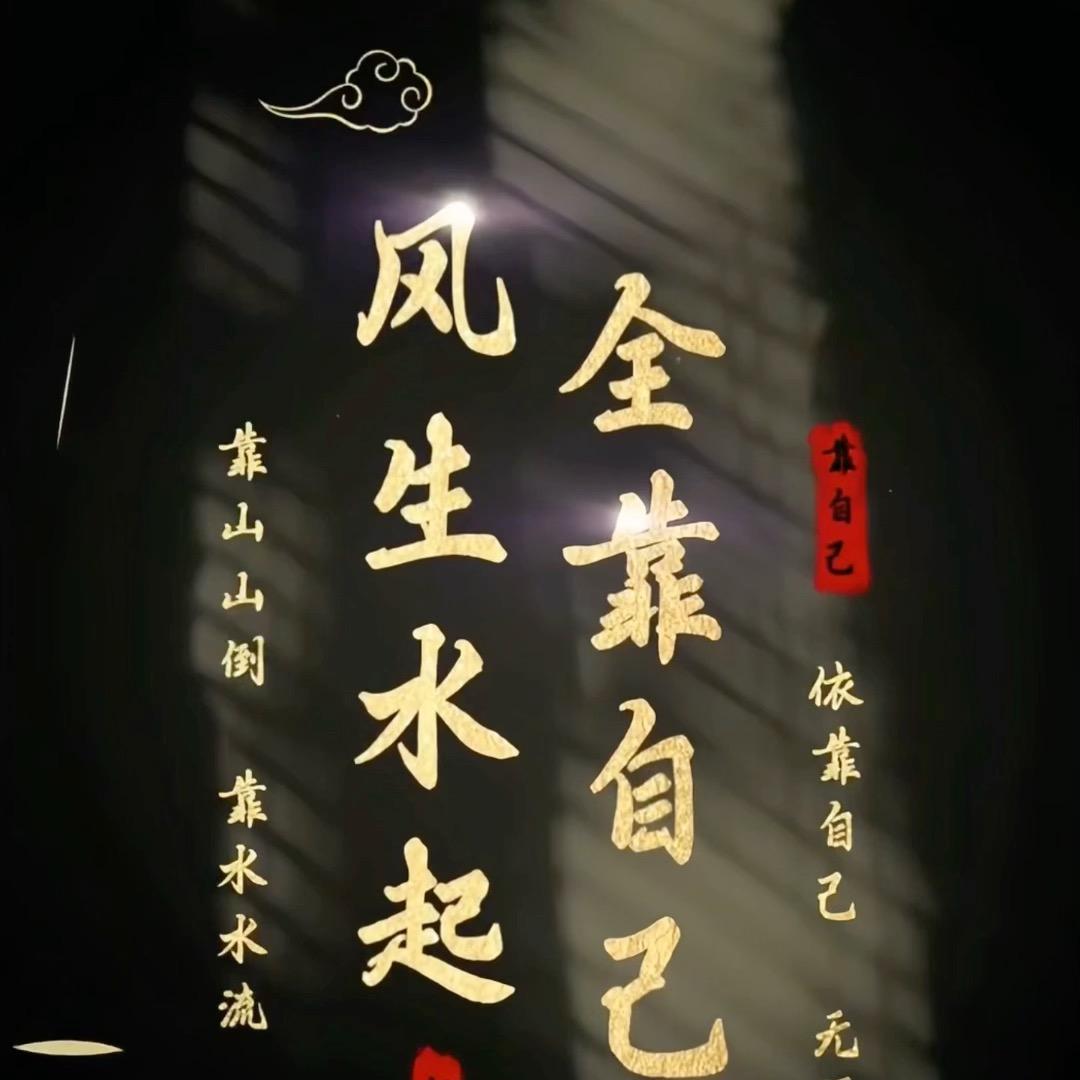 风生水起
全靠自己
靠山山倒 靠水水流
靠自己
依靠自己 无